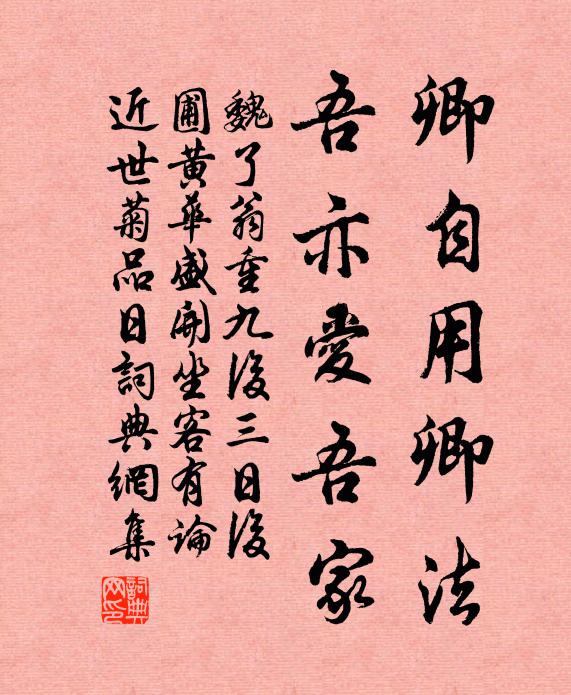 卿自用卿法
吾亦愛吾家
魏了翁重九後三日後
圃黃華盛開坐客有論
近世菊品日詞典網集
詞典
网印